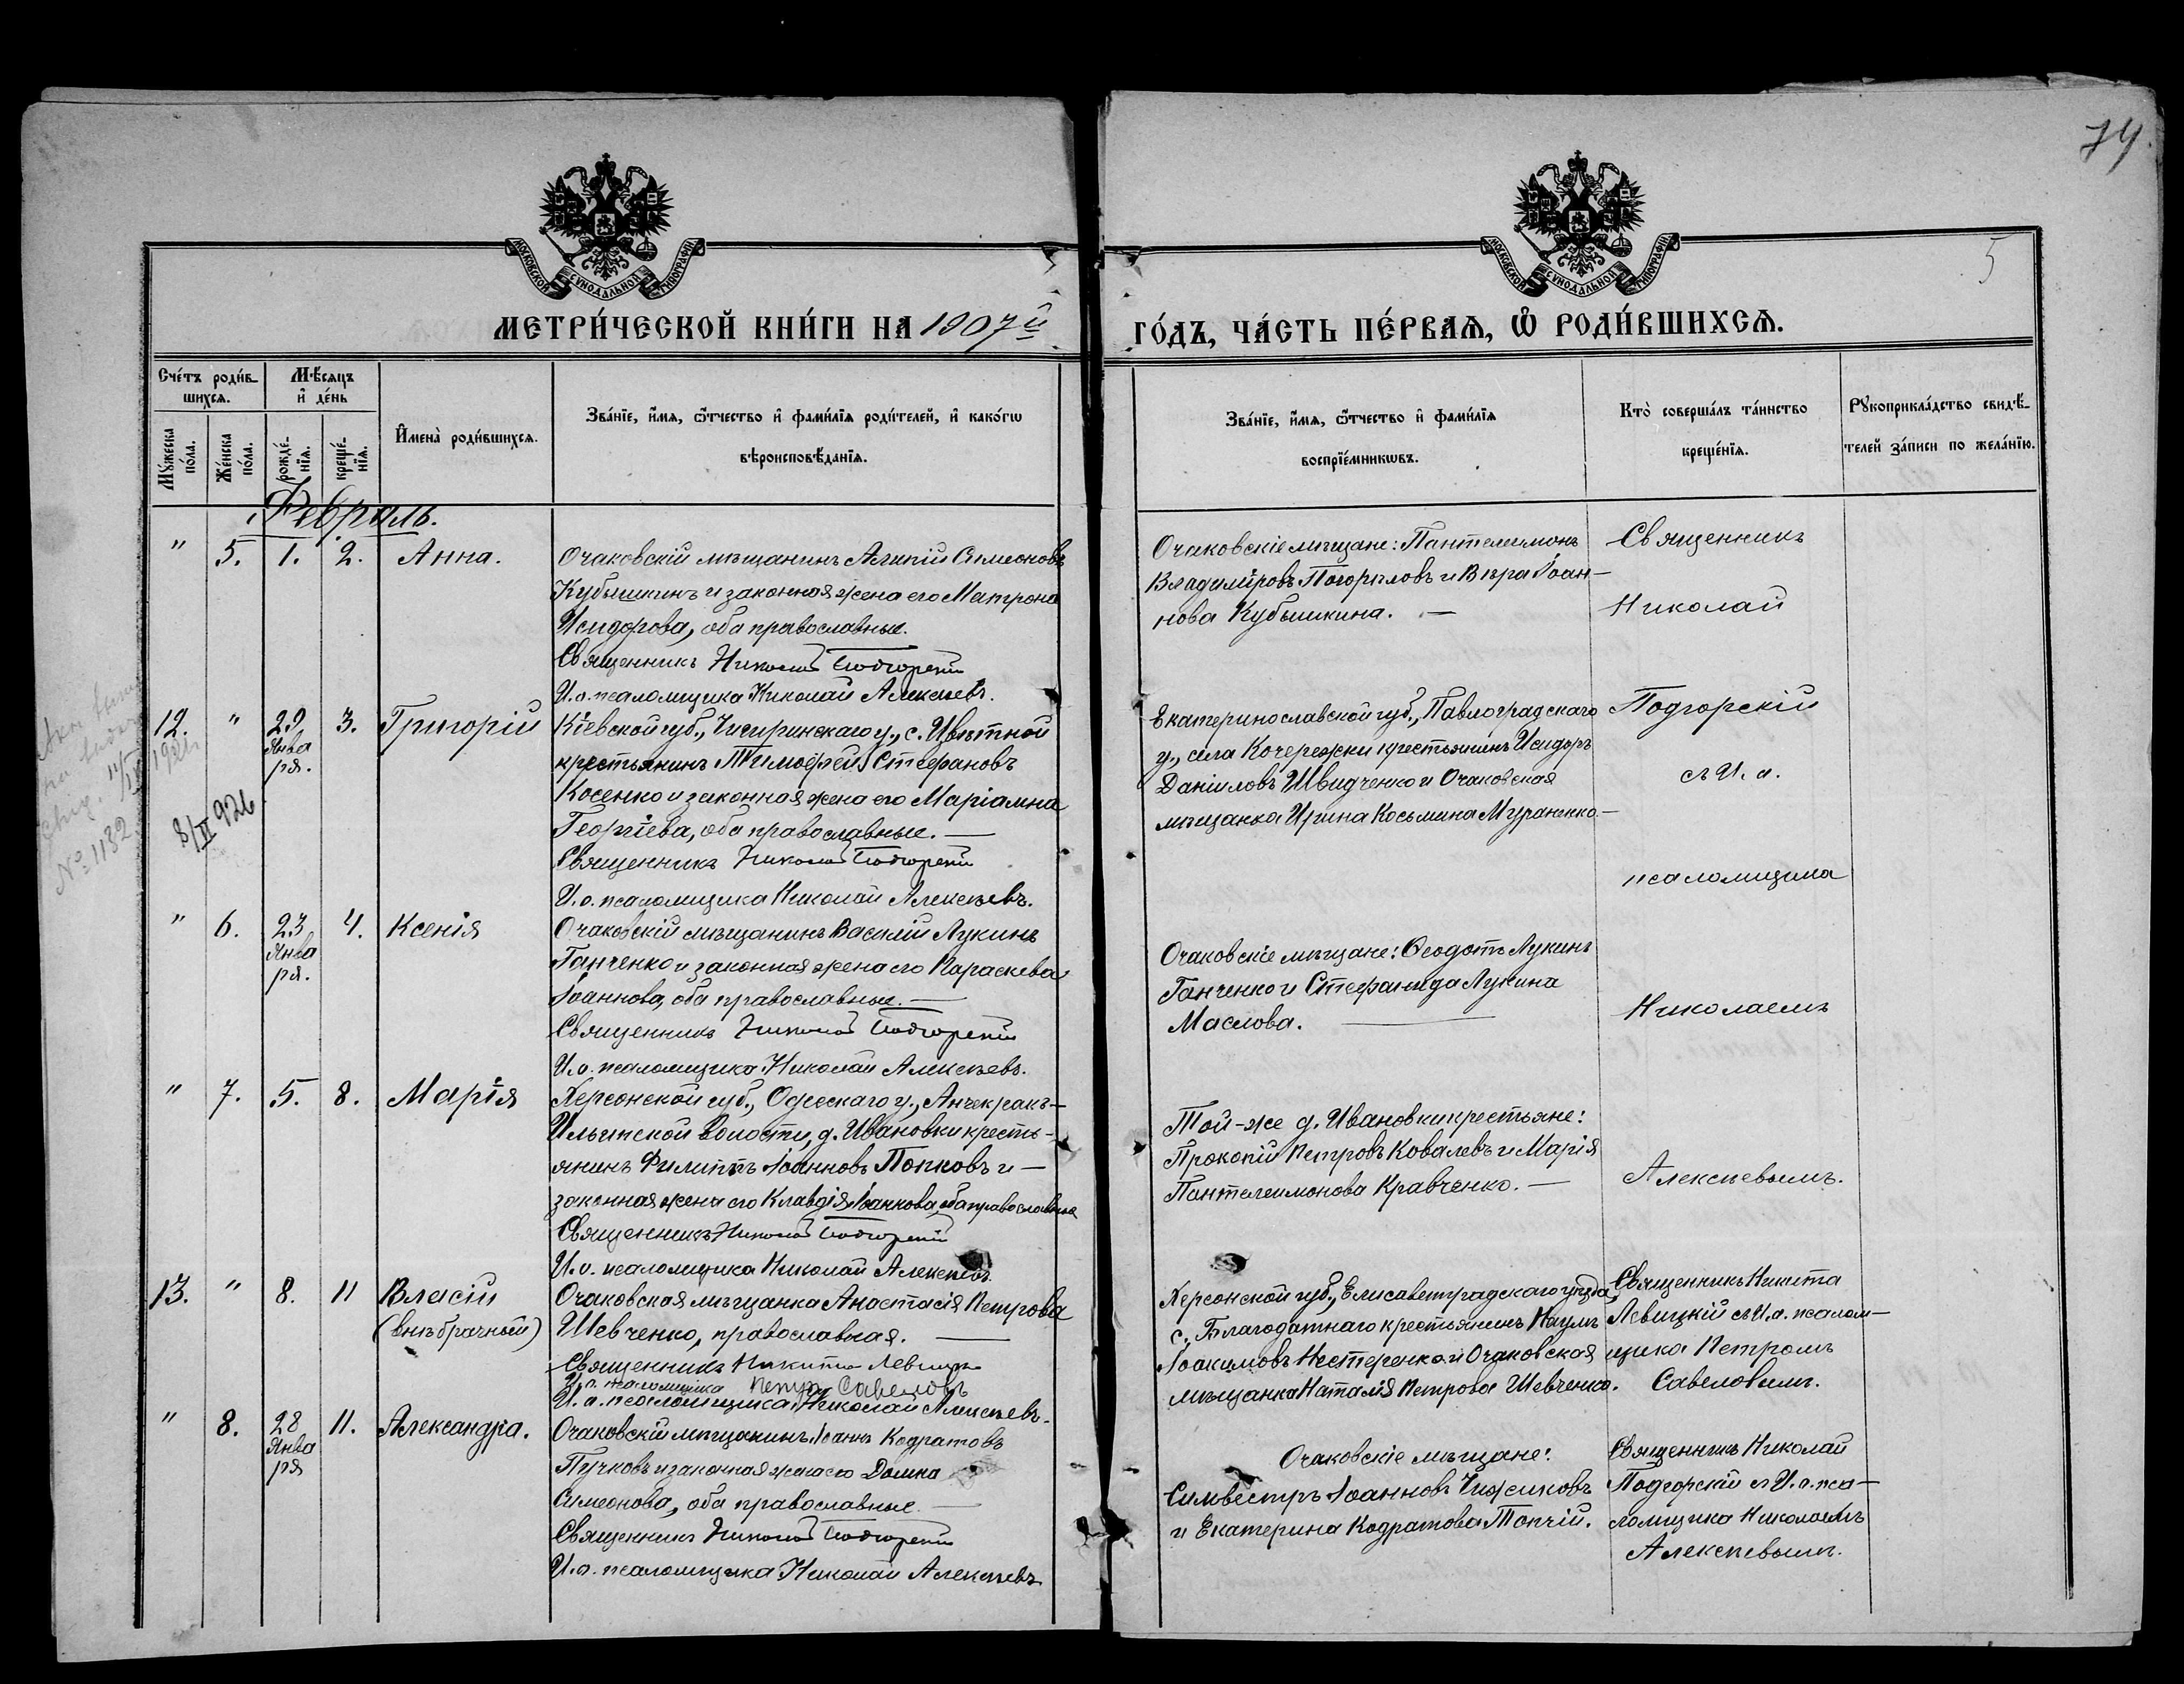 74.
5
МОСКОВСКОЙ СѴНОДАЛЬНОЙ ТИПОГРАФІИ
МОСКОВСКОЙ СѴНОДАЛЬНОЙ ТИПОГРАФІИ
МЕТРИ́ЧЕСКОЙ КНИ́ГИ НА 1907й
ГО́ДЪ, ЧА́СТЬ ПЕ́РВАѦ, Ѽ РОДИ́ВШИХСѦ.
Сче́тъ роди́в-
шихсѧ.
Мꙋ́жеска по́ла.
Же́нска по́ла.
Мѣ́сѧцъ
и҆ де́нь
рожде́-
нїѧ.
креще́-
нїѧ.
И҆мена̀ роди́вшихсѧ.
Зва́нїе, и҆́мѧ, ѻ҆́тчество и҆ фами́лїѧ роди́телей, и҆ како́гѡ
вѣроисповѣ́данїѧ.
Зва́нїе, и҆́мѧ, ѻ҆́тчество и҆ фами́лїѧ
воспрїе́мникѡвъ.
Кто̀ соверша́лъ та́инство
креще́нїѧ.
Рꙋкоприкла́дство свидѣ́-
телей за́писи по жела́нїю.
Февраль.
" 5. 1. 2. Анна.
Очаковскій мѣщанинъ Агапій Симеоновъ
Кубышкинъ и законная жена его Матрона
Исидорова, оба православные.
Священникъ Николай Подгорскій
И. о. псаломщика Николай Алексѣевъ.
Очаковскіе мѣщане: Пантелеимонъ
Владиміровъ Погорѣловъ и Вѣра Іоан-
нова Кубышкина. —
Священникъ
Николай
12. " 29 Января. 3. Григорій
Кіевской губ., Чигиринскаго у., с. Цвѣтной
крестьянинъ Тимоѳей Стефановъ
Косенко и законная жена его Маріамна
Георгіева, оба православные. —
Священникъ Николай Подгорскій
И. о. псаломщика Николай Алексѣевъ.
8/II 926
№ 1182
Екатеринославской губ., Павлоградскаго
у., села Кочережки крестьянинъ Исидоръ
Даніиловъ Швидченко и Очаковская
мѣщанка Ирина Косьмина Мураненко.—
Подгорскій
съ И. о.
псаломщика
" 6. 23 Января. 4. Ксенія
Очаковскій мѣщанинъ Василій Лукинъ
Ганченко и законная жена его Параскева
Іоаннова, оба православные. —
Священникъ Николай Подгорскій
И. о. псаломщика Николай Алексѣевъ.
Очаковскіе мѣщане: Ѳеодотъ Лукинъ
Ганченко и Стефанида Лукина
Маслова. —
Николаемъ
" 7. 5. 8. Марія
Херсонской губ., Одесскаго у., Анчекракъ-
Ильинской волости, д. Ивановки кресть-
янинъ Филиппъ Іоанновъ Попковъ и —
законная жена его Клавдія Іоаннова, оба православные
Священникъ Николай Подгорскій
И. о. псаломщика Николай Алексѣевъ.
Той-же д. Ивановки крестьяне:
Прокопій Петровъ Ковалевъ и Марія
Пантелеимонова Кравченко. —
Алексѣевымъ.
13. " 8. 11 Власій
(внѣбрачный)
Очаковская мѣщанка Анастасія Петрова
Шевченко, православная. —
Священникъ Никита Левицкій
И. о. псаломщика Петръ Савеловъ
И. о. псаломщика Николай Алексѣевъ.
Херсонской губ., Елисаветградскаго уѣзда,
с. Благодатнаго крестьянинъ Наумъ
Іоакимовъ Нестеренко и Очаковская
мѣщанка Наталія Петрова Шевченко.
Священникъ Никита
Левицкій съ И. о. псалом-
щика Петромъ
Савеловымъ.
" 8. 28 Января 11. Александра.
Очаковскій мѣщанинъ Іоаннъ Кодратовъ
Пучковъ и законная жена его Домна
Симеонова, оба православные. —
Священникъ Николай Подгорскій
И. о. псаломщика Николай Алексѣевъ
Очаковскіе мѣщане:
Сильвестръ Іоанновъ Чижиковъ
и Екатерина Кодратова Топчій.
Священникъ Николай
Подгорскій съ И. о. пса-
ломщика Николаемъ
Алексѣевымъ.